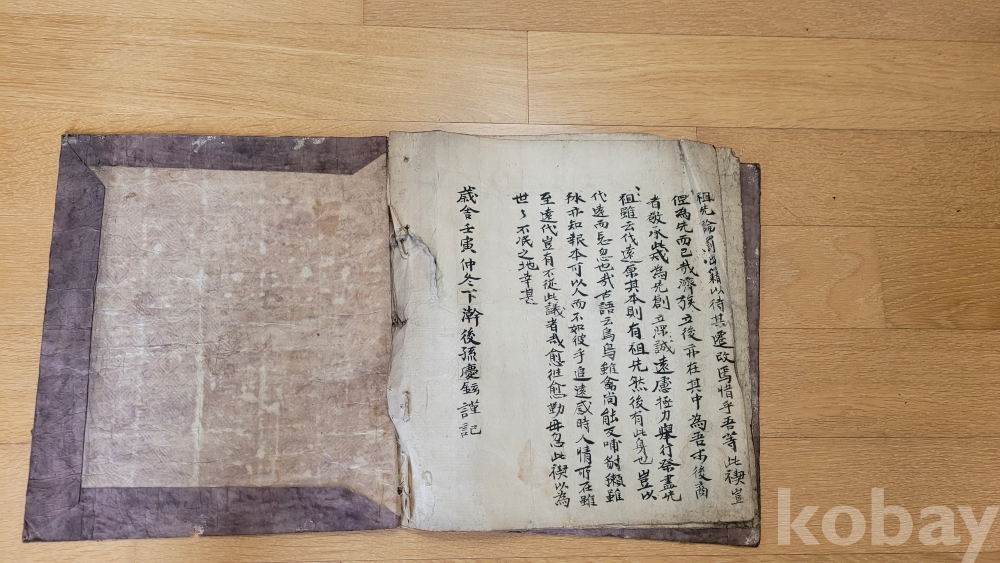 祖先論罰出籍以待其遷改焉惜乎吾等此禊豈
但為先而已哉濟族立後亦在其中為吾 後裔
者敬承此戒為先創立深誠遠慮極力舉行發盡先
祖雖云代遠原其本則有祖先然後有此身也豈以
代遠而忘忽也哉古語云烏鳥雖禽尚能反哺豺獺雖
 亦知報本可以人而不如彼乎追遠感時人情所在雖
至遠代豈有不從此議者哉愈往愈勤毋忽此禊以為
世々不泯之地幸甚
歲舍壬寅仲冬下澣後孫慶 謹記
kobay